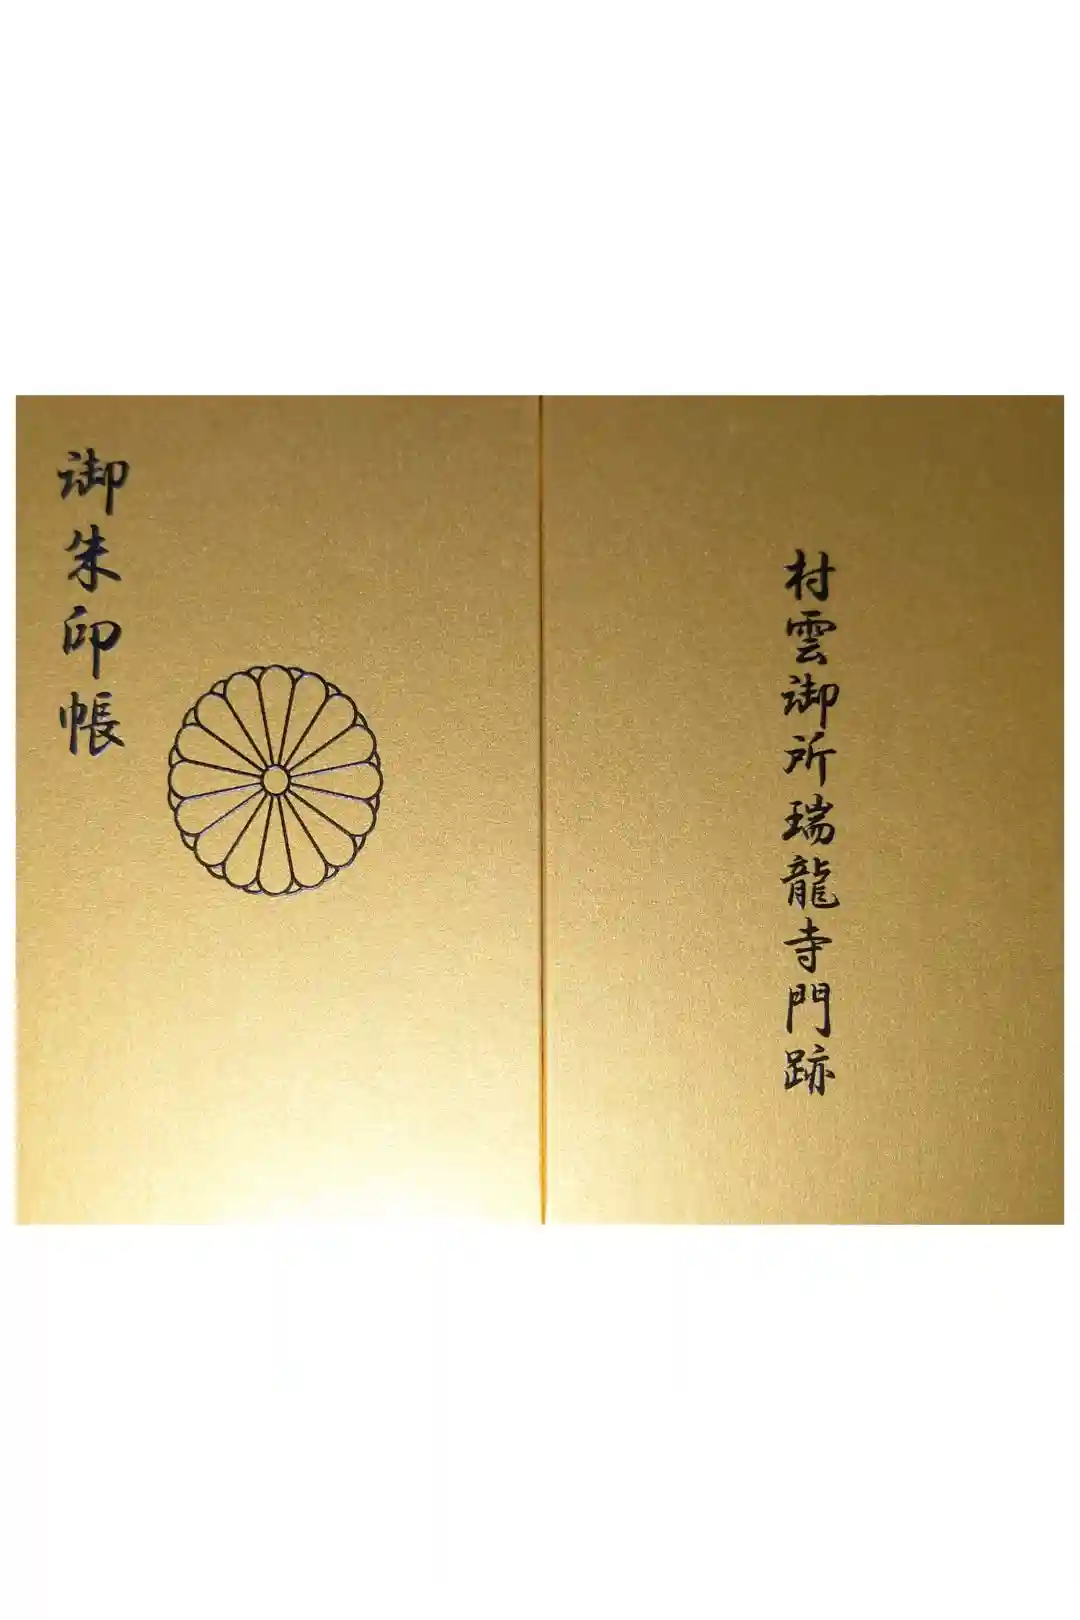 御朱印帳
村雲御所瑞龍寺門跡